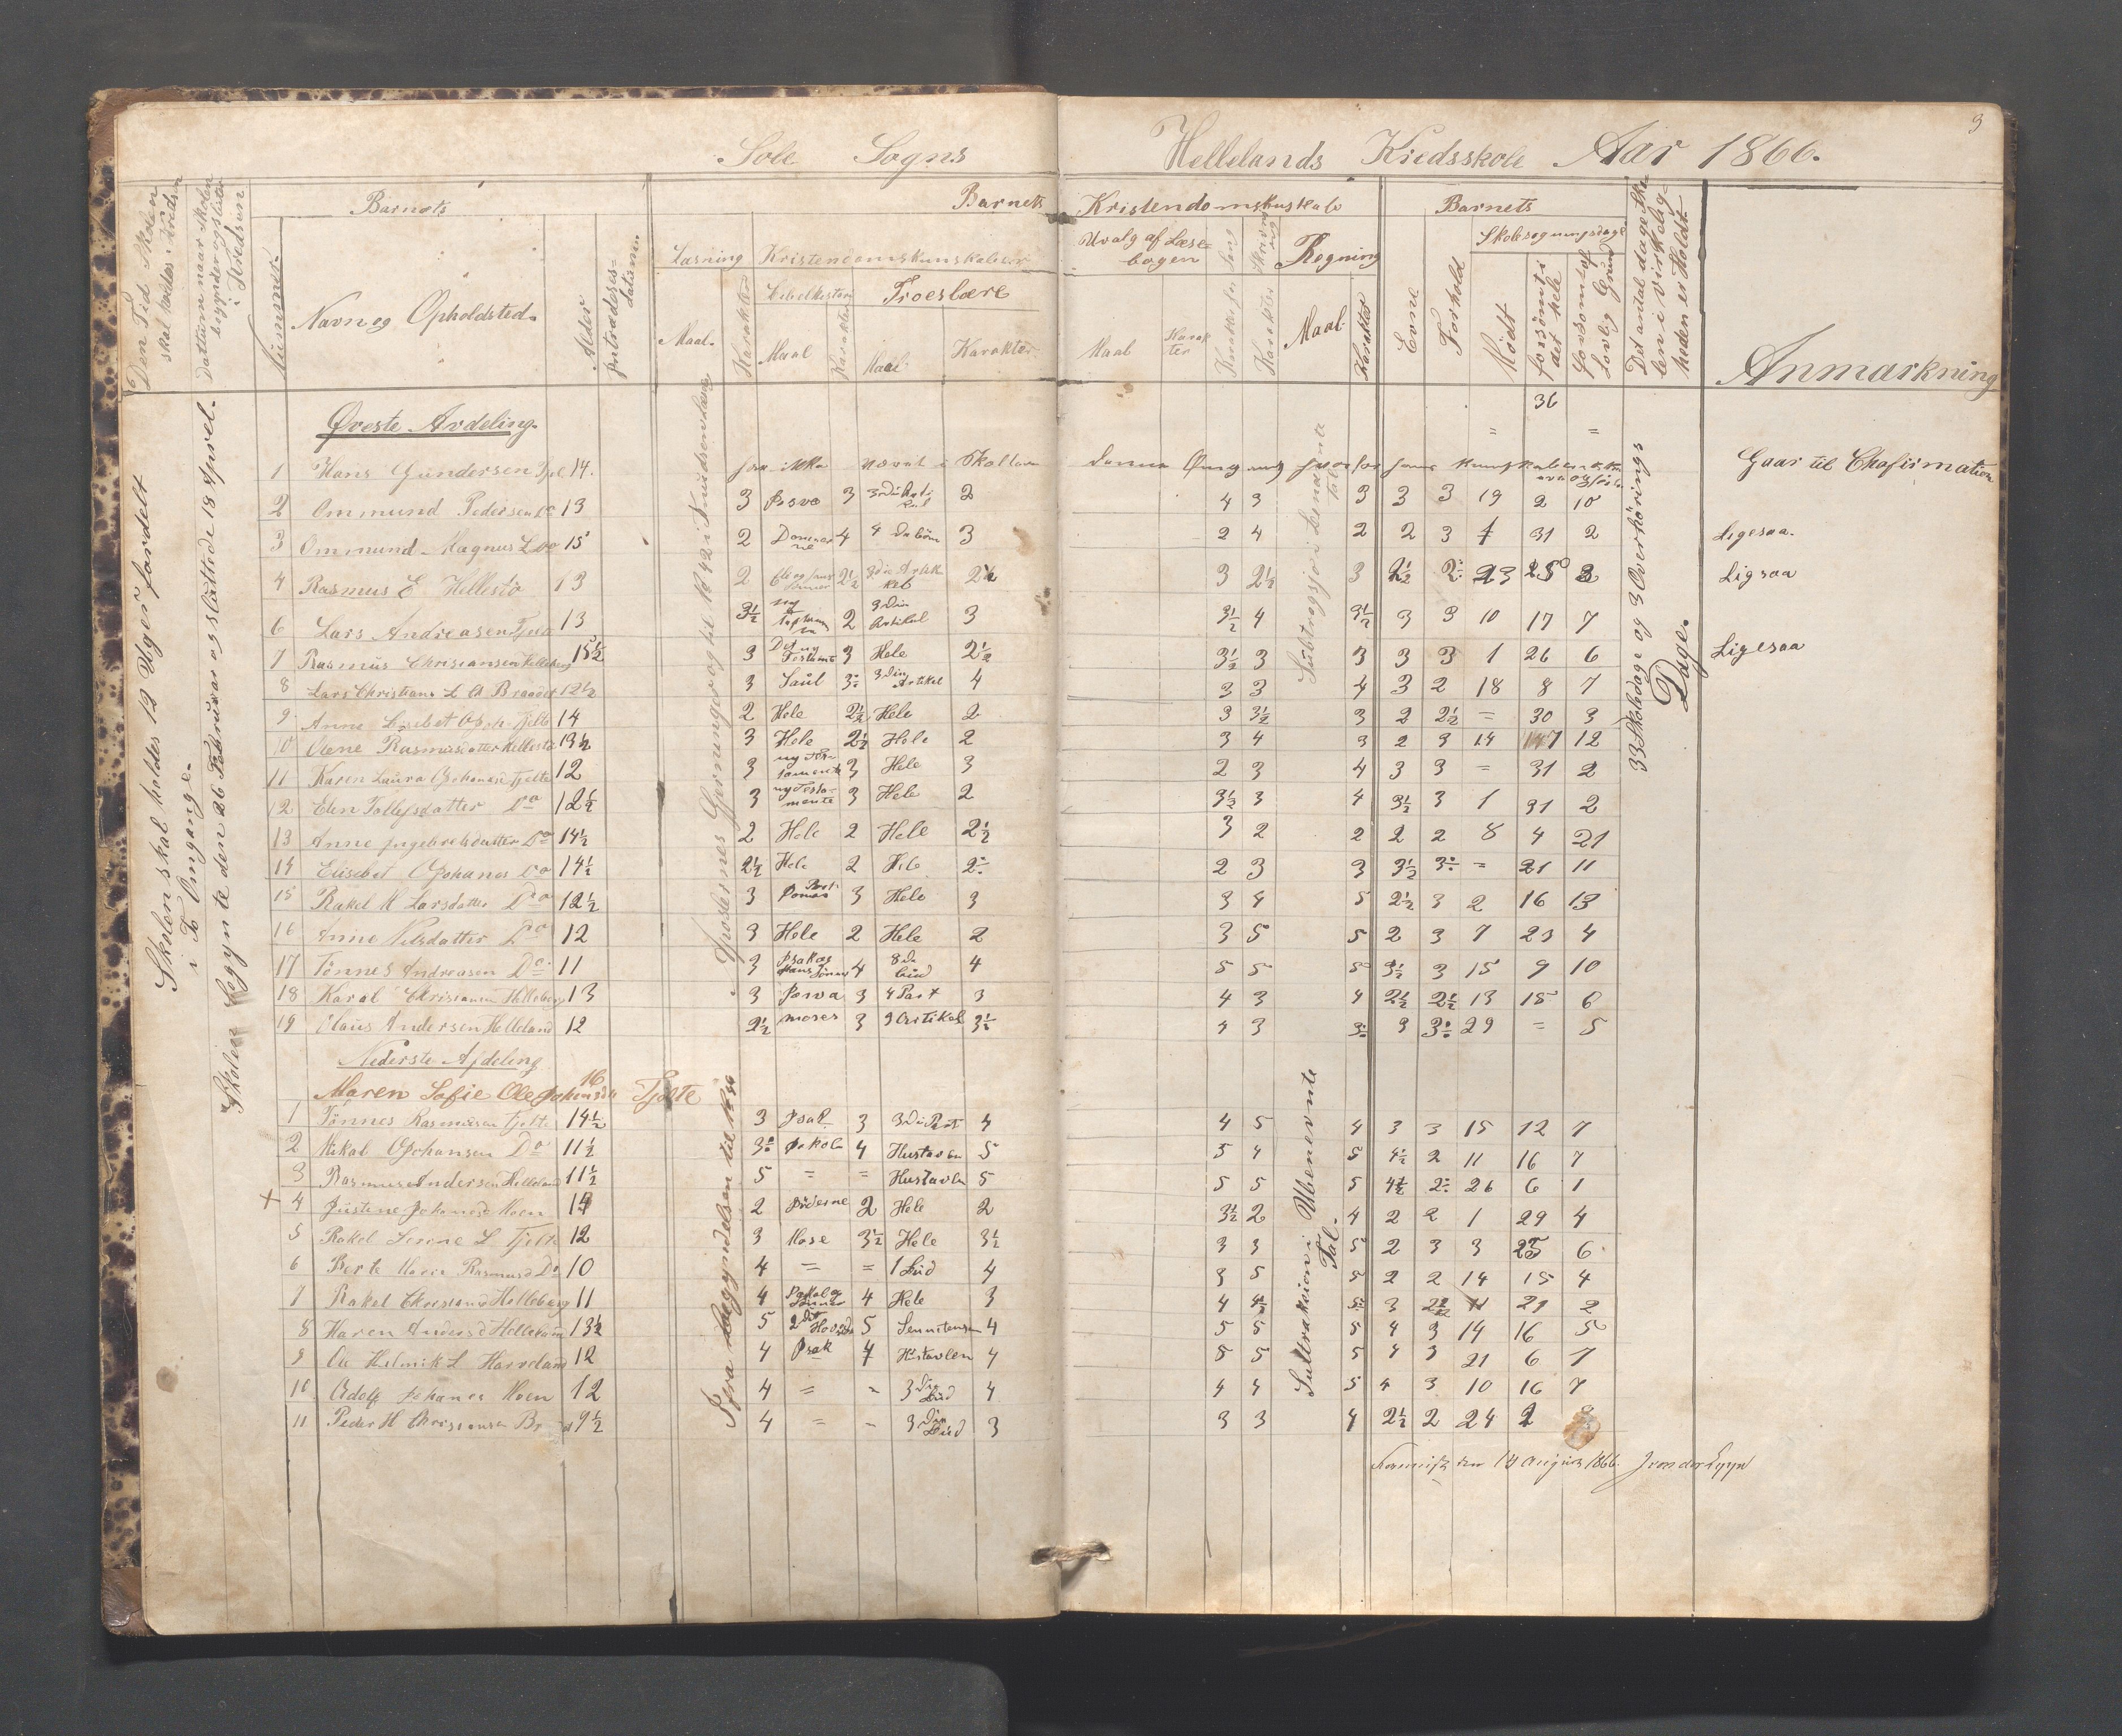 Sole Sogns
Hellelands Kredsskole Aar 1866.
3
Den Tid Skolen skal holdes i Kredsen
Datum naar Skolen begynder og slutter i Kredsen
Nummer.
Barnets
Navn og Opholdsted.
Alder
Intrædelses-datum.
Barnets
Læsning
Maal.
Karakter
Kristendomskunskaber
Bibelhistori
Maal
Karakter
Troeslære
Maal.
Karakter.
Kristendomskuskab
Utvalg af Læse-bogen
Maal
Karakter
Sang
Karakter
Skrivning
Karakter
Regning
Maal.
Karakter
Barnets
Evne
Forhold
Skolesøgningsdage
Mødt
forsömt i det hele
hvoraf Lovlig Grund
Det antal dage Skolen i virkeligheden er Holdt.
Anmærkning
Skolen skal holdes 12 Uger fordelt i To Omgange.
Skolen begynte den 26 Februar og sluttede 18 Aprel.
Apostlernes Gjerninger
Fra Begyndelsen til
Subtraksjon i Benævnte tal
Subtraksion i Ubenevnte Tal.
33 Skoledage og 3 Overhørings Dage.
36
Øveste Avdeling.
1 Hans Gundersen Tjel 14. har ikke været i Skolen denne Omgang hvorfor hans kunskaber ikke Gaar til Ckofirmation
2 Ommund Pedersen Do 13 3 Josva 3 3die Artikel 2 4 3 3 3 3 19 2 10
3 Ommund Magnus L Do 15 2 Dommerne 4 4 da bøn 3 2 4 2 2 3 1 31 2 Ligesaa.
4 Rasmus E Hellestö 13 2 2½ 3die Artikel 2½ 3 2½ 3 2½ 2 23 25 3 Ligsaa
6 Lars Andreasen Tjelta 13 3½ ny testamente 2 3die Artikel 3 3½ 4 3½ 3 3 10 17 7
7 Rasmus Chrisiansen Helleberg 15½ 3 Det ny Testamte 3 Hele 2½ 3½ 3 3 3 3 1 26 6 Ligesaa
8 Lars Christians L 12½ 3 Saul 3 3die Artikel 4 3 3 4 3 2 18 8 7
9 Anne Lisebet Tjelte 14 2 Hele 2½ Hele 2 3 3½ 3 2 2½ = 30 3
10 Olene Rasmusdatter Hellestö 13½ 3 Hele 2½ Hele 2 3 4 3 2 3 14 7 12
11 Karen Laura Tjelte 12 3 ny Testamente 3 Hele 3 2 3 4 3 3 = 31 2
12 Elen Tollefsdatter Do 12½ 3 ny Testamente 3 Hele 2 3½ 3 4 3½ 3 1 31 2
13 Anne Ingebretsdatter Do 14½ 2 Hele 2 Hele 2½ 3 2 2 2 2 8 4 21
14 Elisebet Johanes Do 14½ 2½ Hele 2 Hele 2 2 3 3 3½ 3 = 21 11
15 Rakel M Larsdatter Do 12½ 3 3 Hele 3 3 4 5 2½ 3 2 16 13
16 Anne Nelsdatter Do 12 3 Hele 2 Hele 2 3 5 5 2 3 7 23 4
17 Tönnes Andreasen Do 11 3 Isak og Hans Sønner 4 8de bud 4 5 5 5 3½ 3 15 9 10
18 Karal Chrisiansen Helleberg 13 3 Josva 3 4 Part 3 4 3 4 2½ 2½ 13 15 6
19 Olaus Andersen Helleland 12 2½ moses 3 3 Artikel 3½ 4 3 3 3 3 29 = 5
Nederste Afdeling
Maren Sofie Ole Johansdtr 16 Tjelte
1 Tönnes Rasmusen Tjelte 14½ 3 Isak 3 3die Part 4 4 5 4 3 3 15 12 7
2 Mikal Johansen Do 11½ 3 Jakob 4 Hustavlen 5 5 4 5 4½ 2 11 16 7
3 Rasmus Andersen Helleland 11½ 5 = = Hustavlen 5 5 5 5 4½ 2 26 6 1
+ 4 Justine Johansd Moen 14 2 Jöderne 2 Hele 2 3½ 2 4 2 2 1 29 4
5 Rakel Serine L Tjelte 12 3 Mose 3½ Hele 3½ 3 3 5 2 3 3 25 6
6 Berte Maria Rasmusd Do 10 4 = = 1 Bud 4 3 5 5 2 2 14 15 4
7 Rakel Chrisiansd Helleberg 11 4 Jakob og Sönner 4 Hele 3 4 4½ 5 3 2½ 11 21 2
8 Karen Andersd Helleland 13½ 5 5 4 5 5 5 4 3 14 16 5
9 Ole Helmik L Haaveland 12 4 Isak 4 Hustavlen 4 5 5 5 4 3 21 6 7
10 Adolf Johanes Moen 12 4 = = 3die Bud 4 4 4 5 4 3 10 16 7
11 Peder H Chrisiansen 9½ 4 = = 3die Bud 3 3 3 4 2½ 2 24 2
den 14 August 1866.